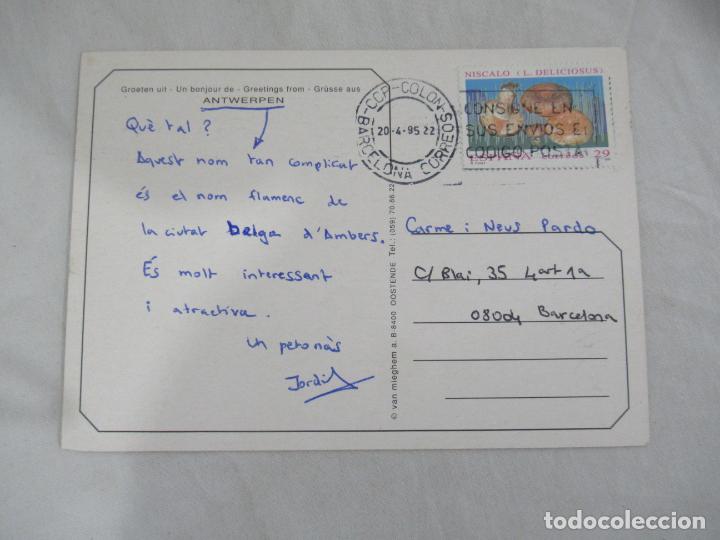 Groeten uit - Un bonjour de - Greetings from - Grüsse aus
ANTWERPEN
Què tal ?
Aquest nom tan complicat
és el nom flamenc de
la ciutat belga d'Ambers.
És molt interessant
i atractiva.
Un petonàs
Jordi
© van mieghem a. B-8400 OOSTENDE Tel.: (059) 70.66.22
CCP-COLON-CORREOS
BARCELONA
20-4-95 22
NISCALO (L. DELICIOSUS)
CONSIGNE EN
SUS ENVIOS EL
CODIGO POSTAL
ESPAÑA
29
Carme i Neus Pardo
C/ Blai, 35 4art 1a
08004 Barcelona
todocoleccion.net